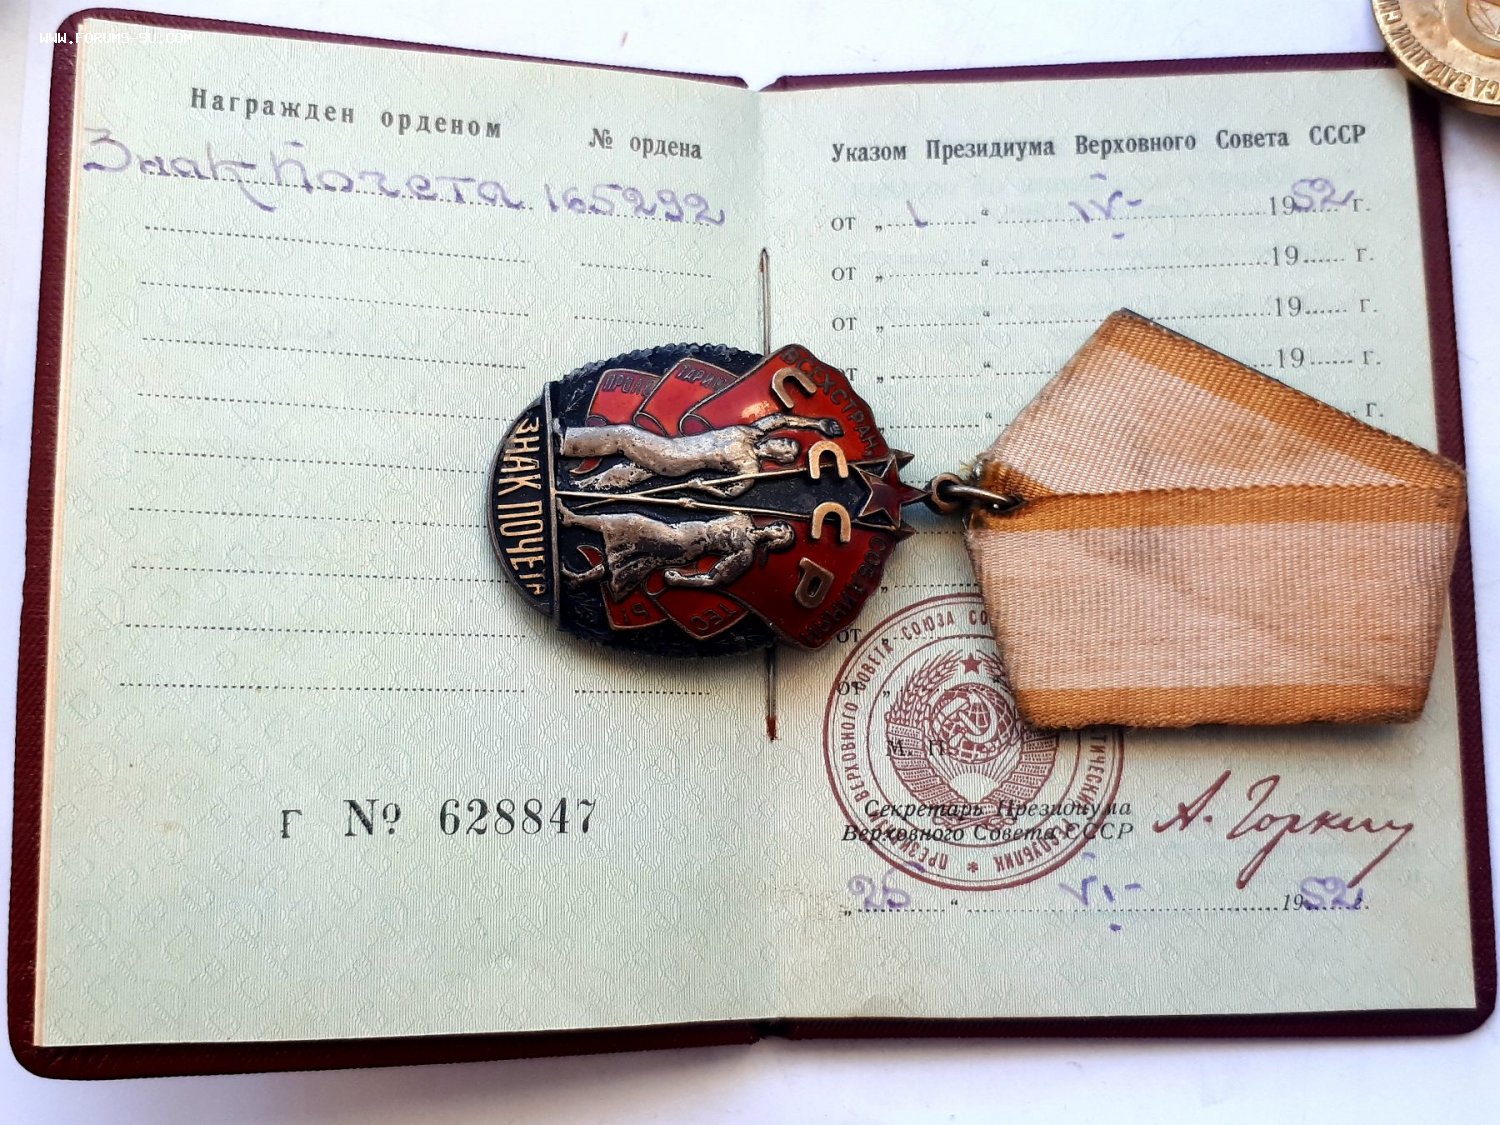 WWW.FORUMS-SU.COM
Награжден орденом
№ ордена
Знак Почета 165292
Г № 628847
Указом Президиума Верховного Совета СССР
от „ 1 “ IV- 1952 г.
от „ “ 19 г.
от „ “ 19 г.
от „ “ 19 г.
“ г.
от „
от „
М. П.
Секретарь Президиума
Верховного Совета СССР
А. Горкин
„ 25 “ VI- 1952 г.
ВСЕХ СТРАН,
СССР
ЗНАК ПОЧЕТА
ПРЕЗИДИУМ ВЕРХОВНОГО СОВЕТА СОЮЗА
РЕСПУБЛИК